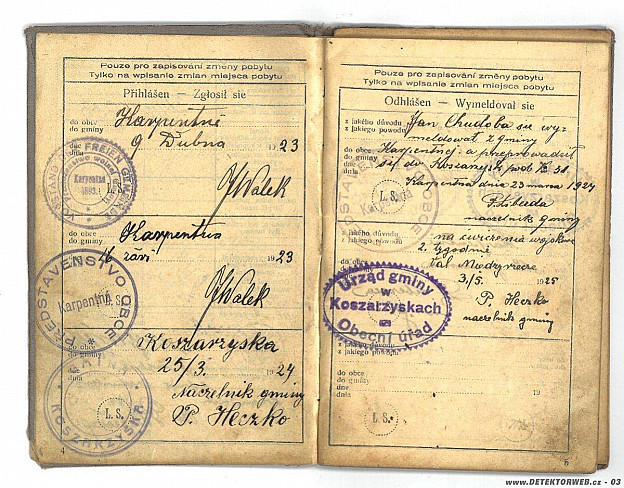 Pouze pro zapisování změny pobytu
Tylko na wpisanie zmian miejsca pobytu
Přihlášen — Zgłosił sie
do obce
do gminy
Karpentné
dne
dnia
9 Dubna
1923
L. S.
JWalek
do obce
do gminy
Karpentna
16 září
1923
L. S.
JWalek
do obce
do gminy
Koszarzyska
dne
dnia
25/3.
1924
L. S.
Naczelnik gminy
P. Heczko
PŘEDSTAVENSTVO OBCE
Karpentná
KOSZARZYSKA
4
Pouze pro zapisování změny pobytu
Tylko na wpisanie zmian miejsca pobytu
Odhlášen — Wymeldował sie
z jakého důvodu
z jakiego powodu
Jan Chudoba se wy-
meldował z gminy
do obce
do gminy
Karpentnej a przeprowadził
dne
dnia
się do Koszarzysk pod Nr. 51.
Karpentna dnia 23 marca 1924
L. S.
Karpentná
naczelnik gminy
z jakého důvodu
z jakiego powodu
na ćwiczenia wojskowe
do obce
do gminy
2. tygodnie
3./5. 1925
P. Heczko
naczelnik gminy
Urząd gminy
w
Koszarzyskach
Obecní úřad
z jakého důvodu
z jakiego powodu
do obce
do gminy
dne
dnia
19
L. S.
www.DETEKTORWEB.cz - 03